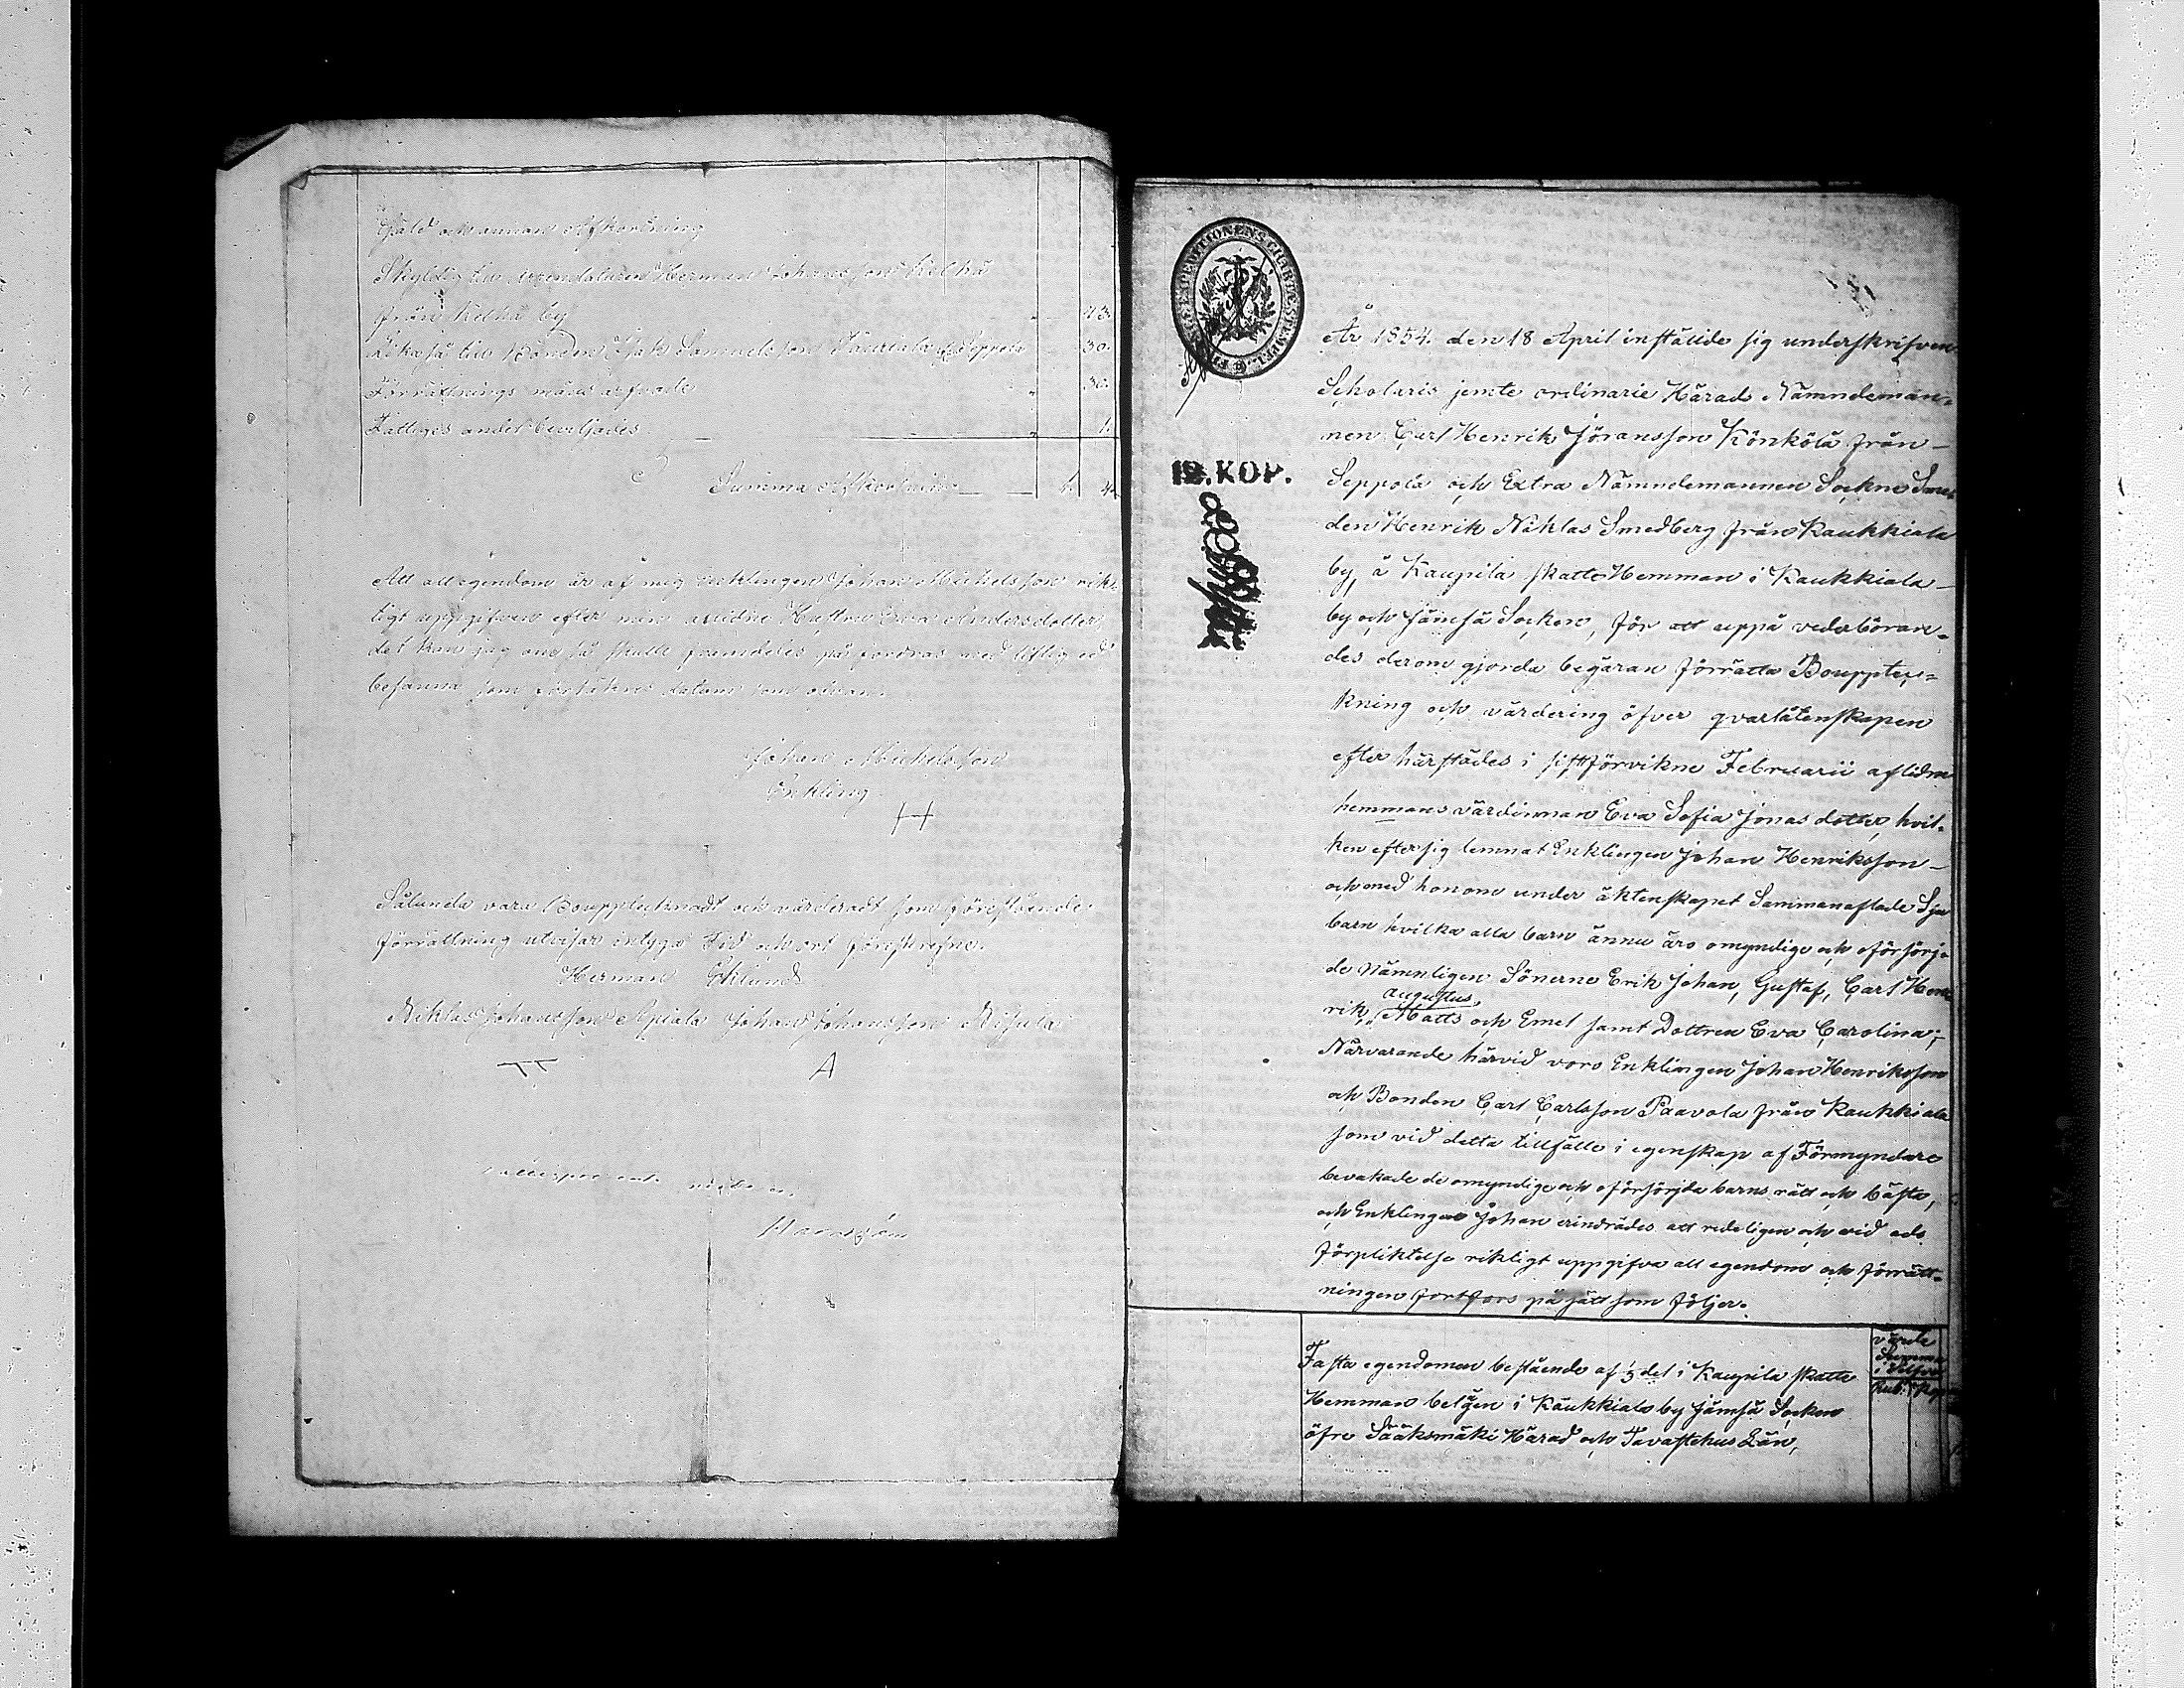 Gäld och annan Afkortning
Skyldig till Arrendatorn Herman Johansson Kelhä
från Kelhä by
Likaså till Bonden Isak Samuelsson Tauriala Seppola 30.
Förrättnings mäns arfvode 30.
Fattiges andel beviljades 1.
Summa Afkortning
Att all egendom är af mig Enklingen Johan Michelsson rik-
tigt uppgifven efter min aflidne Hustru Eva Andersdotter,
det kan jag om så skulle framdeles på fordras med liflig ed
besanna som försäkras datum som ofvan.
Johan Michelsson
Enkling
Sålunda vara Bouppteknadt och värderadt som förestående
förrättning utvisar intyga Tid och ort föreskrefne.
Herman Eklund
Niklas Johansson Johan Johansson Nisula
A
FINSKA EXPEDITIONENS CHARTÆ STEMPEL
År 1854. den 18 April inställde sig underskrifven
Scholaris jemte ordinarie Härads Nämndeman-
nen Carl Henrik Jöransson Könkölä från
12. KOP.
Seppola och Extra Nämndemannen Sockne Sme-
den Henrik Niklas Smedberg från Kaukkiala
by, å Kaupila skatte Hemman i Kaukkiala
by och Jämsä Socken, för att uppå vederböran-
des derom gjorda begäran förrätta Bouppteck-
kning och värdering öfver qvarlåtenskapen
efter härstädes i sistförvikne Februarii aflidne
hemmans värdinnan Eva Sofia Jonas dotter, hvil-
ken efter sig lemnat Enklingen Johan Henriksson
och med honom under äktenskapet Sammanaflade Sju
barn hvilka alla barn ännu äro omyndige och oförsörj-
de Nämnligen Sönerne Erik Johan, Gustaf, Carl Hen-
Augustus,
rik, Matts och Emel samt Dottren Eva Carolina;
Närvarande härvid voro Enklingen Johan Henriksson
och Bonden Carl Carlsson Paavola från Kaukkiala
som vid detta tillfälle i egenskap af Förmyndare
bevakade de omyndige och oförsörjda barns rätt och bästa,
och Enklingen Johan erindrades att redeligen och vid eds
förpliktelse riktigt uppgifva all egendom och förrätt-
ningen fortfors på sätt som följer.
värde
Summa
i Silfver
Rub. Kop.
Fasta egendomen bestående af 1/3 del i Kaupila skatte
Hemman belägen i Kaukkiala by Jämsä Socken
öfre Sääksmäki Härad och Tavastehus Län,